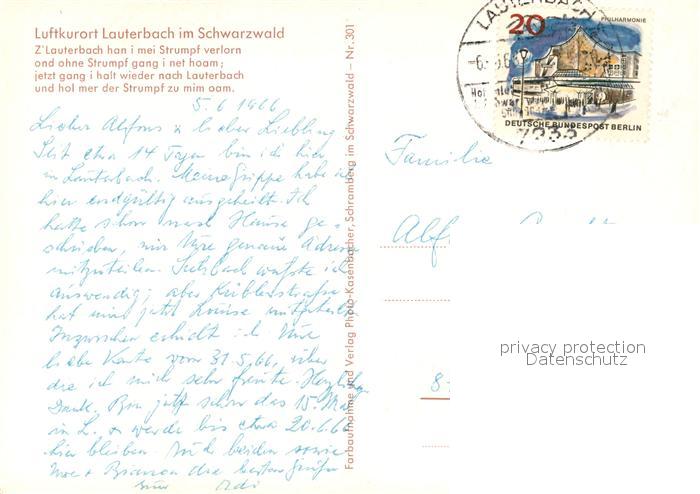 Luftkurort Lauterbach im Schwarzwald
Z'Lauterbach han i mei Strumpf verlorn
ond ohne Strumpf gang i net hoam;
jetzt gang i halt wieder nach Lauterbach
und hol mer der Strumpf zu mim oam.
5.6 1966
Lieber Alfons u lieber Liebling
Seit etwa 14 Tagen bin ich hier
in Lauterbach. Meine Grippe habe ich
hier endgültig ausgeheilt. Ich
hatte schon nach Hause ge-
schrieben, mir Eure genaue Adresse
mitzuteilen. Sulzbach wußte ich
auswendig; aber
hat mir jetzt Louise mitgeteilt.
Inzwischen erhielt ich Eure
liebe Karte vom 31.5.66, über
die ich mich sehr freute. Herzlichen
Dank. Bin jetzt schon das 15. Mal
in L. + werde bis etwa 20.6.66
hier bleiben. Euch beiden sowie
die besten Grüße
Euer
Farbaufnahme und Verlag Photo-Kasenbacher, Schramberg im Schwarzwald – Nr. 301
LAUTERBACH
20
PHILHARMONIE
DEUTSCHE BUNDESPOST BERLIN
Familie
Alf
8
privacy protection
Datenschutz